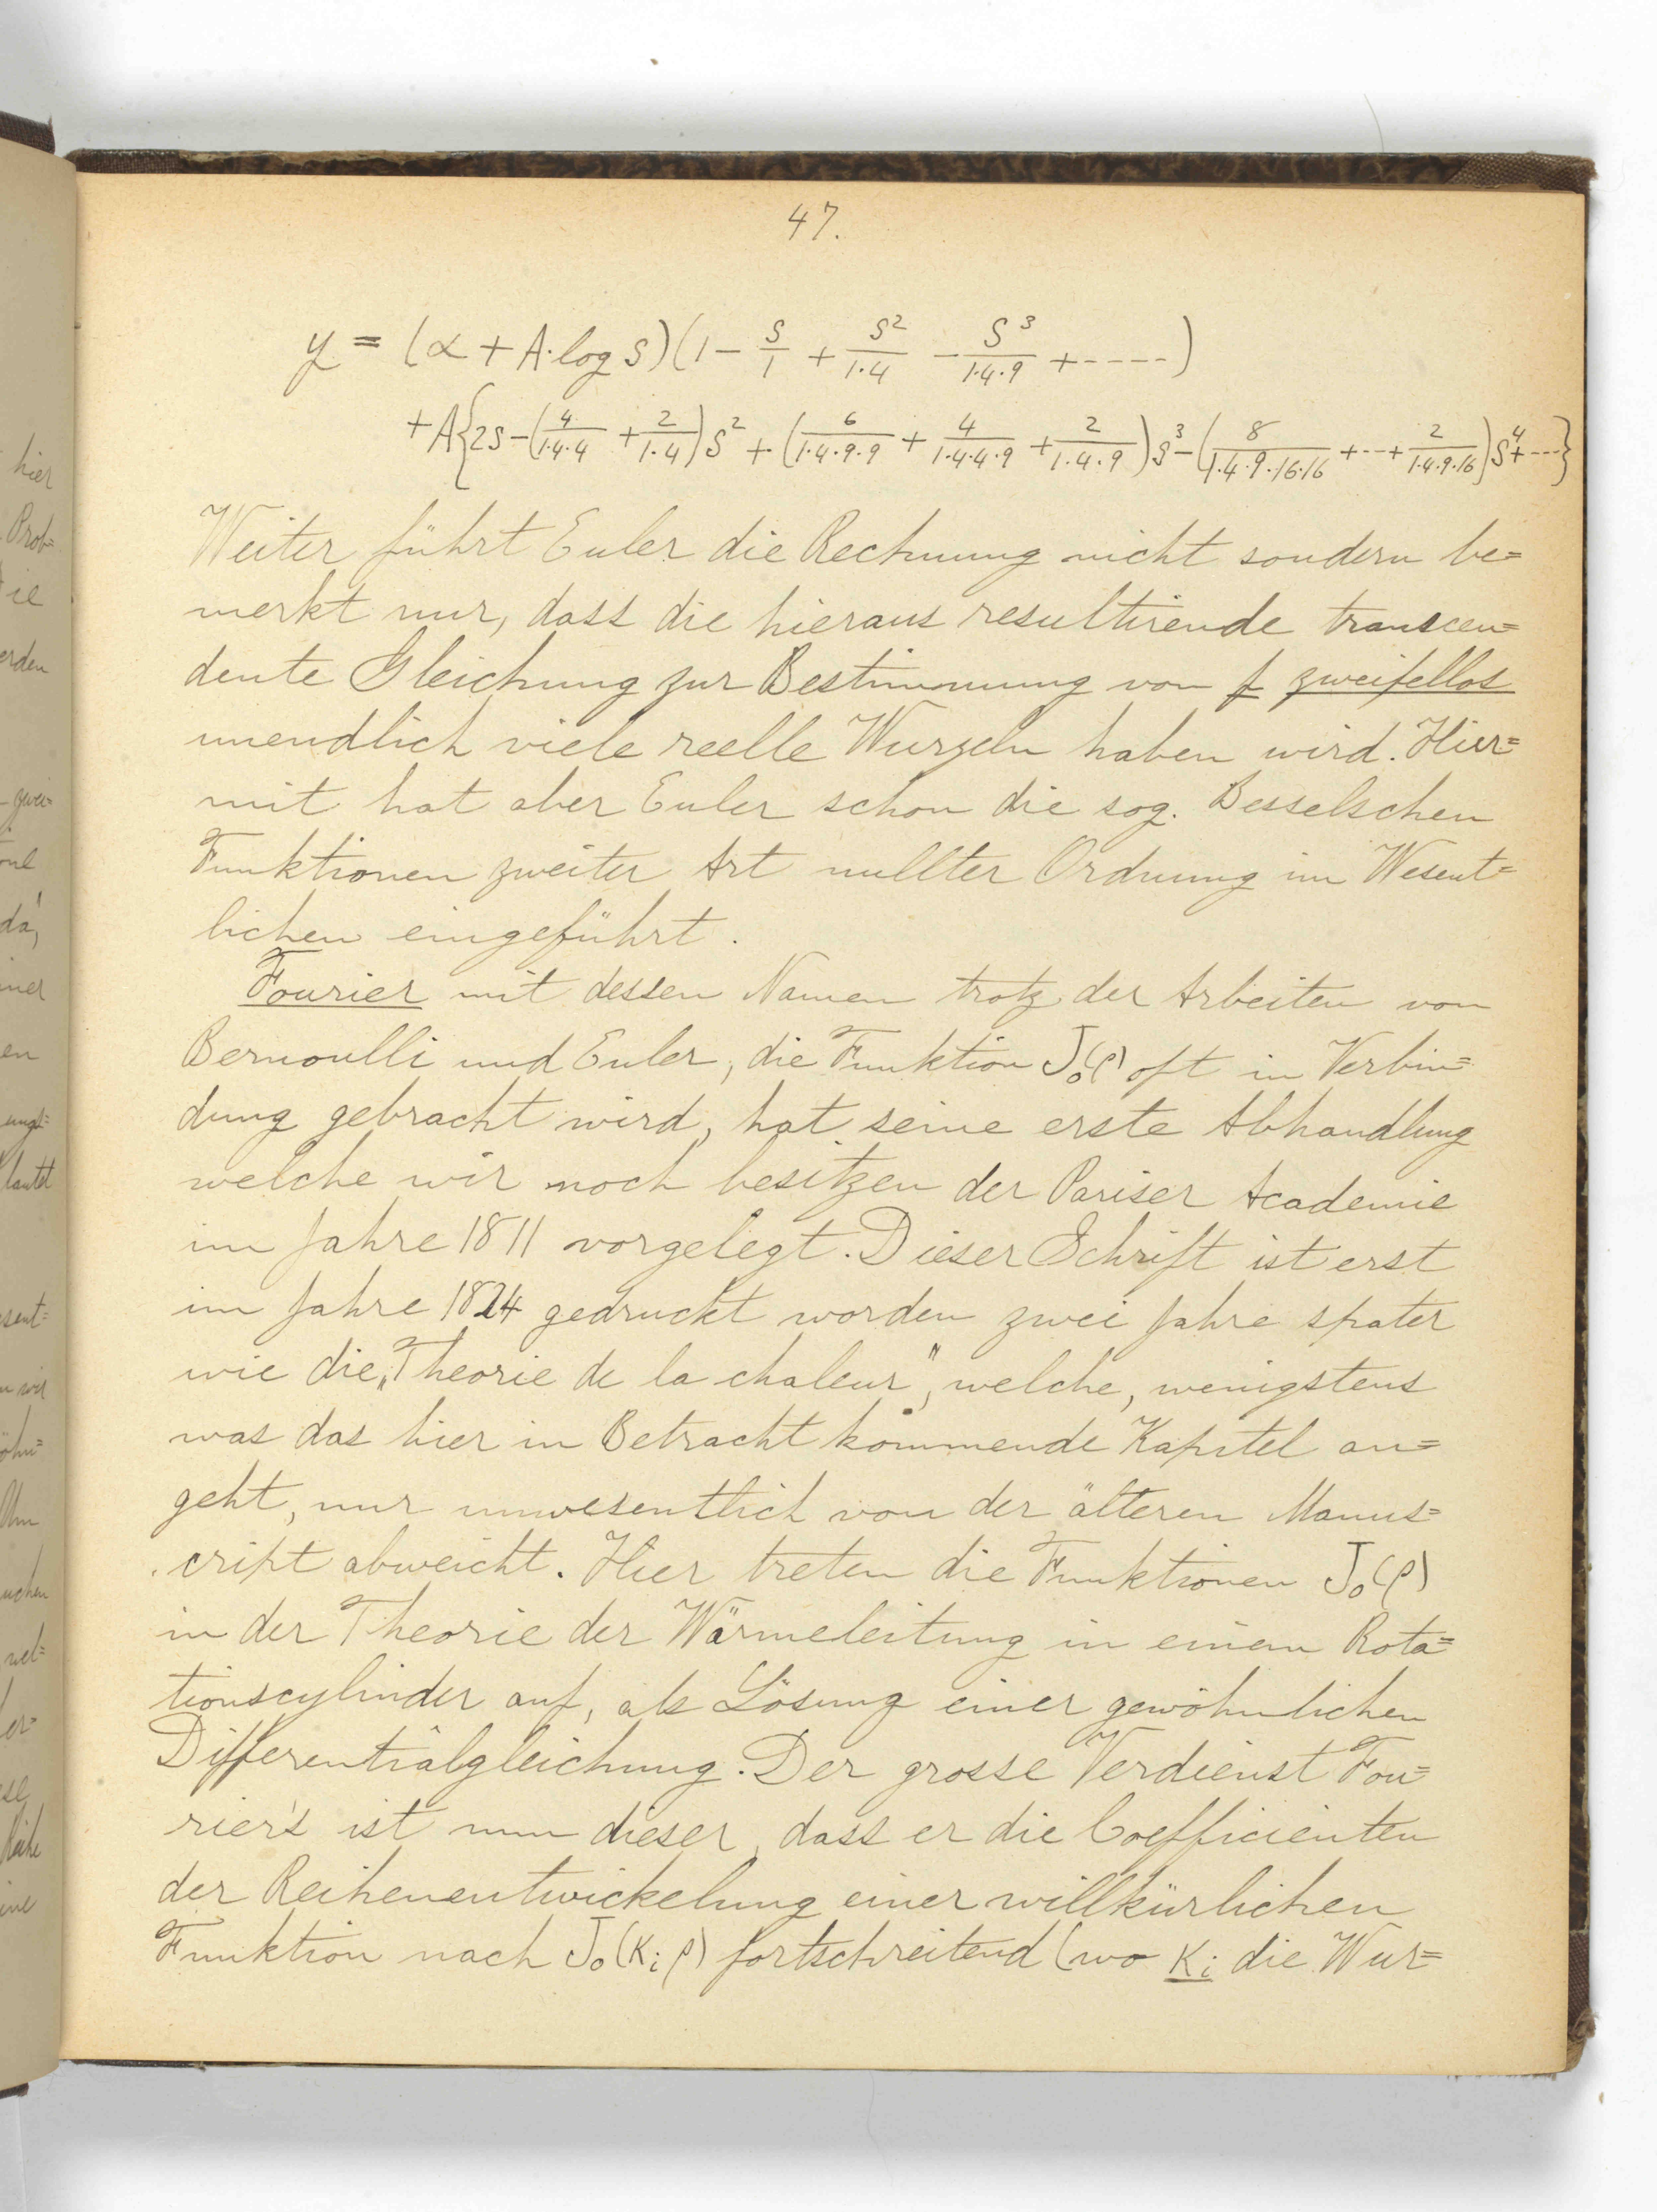 47.
y = (α + A·log s)(1 - s/1 + s²/1·4 - s³/1·4·9 + -----)
+A{2s-(4/1·4·4 + 2/1·4)s² + (6/1·4·9·9 + 4/1·4·4·9 + 2/1·4·9)s³-(8/1·4·9·16·16 +--+ 2/1·4·9·16)s⁴+---}
Weiter führt Euler die Rechnung nicht sondern be=
merkt nur, dass die hieraus resultirende transcen=
dente Gleichung zur Bestimmung von f zweifellos
unendlich viele reelle Wurzeln haben wird. Hier=
mit hat aber Euler schon die sog. Besselschen
Funktionen zweiter Art nullter Ordnung im Wesent=
lichen eingeführt.
Fourier mit dessen Namen trotz der Arbeiten von
Bernoulli und Euler, die Funktion J₀(ρ) oft in Verbin=
dung gebracht wird, hat seine erste Abhandlung
welche wir noch besitzen der Pariser Academie
im Jahre 1811 vorgelegt. Dieser Schrift ist erst
im Jahre 1824 gedruckt worden zwei Jahre spater
wie die „Theorie de la chaleur", welche, wenigstens
was das hier in Betracht kommende Kapitel an=
geht, nur unwesentlich von der älteren Manus=
cript abweicht. Hier treten die Funktionen J₀(ρ)
in der Theorie der Wärmeleitung in einem Rota=
tionscylinder auf, als Lösung einer gewöhnlichen
Differentialgleichung. Der grosse Verdienst Fou=
rier's ist nun dieser, dass er die Coefficienten
der Reihenentwickelung einer willkürlichen
Funktion nach J₀(κᵢρ) fortschreitend (wo κᵢ die Wur=